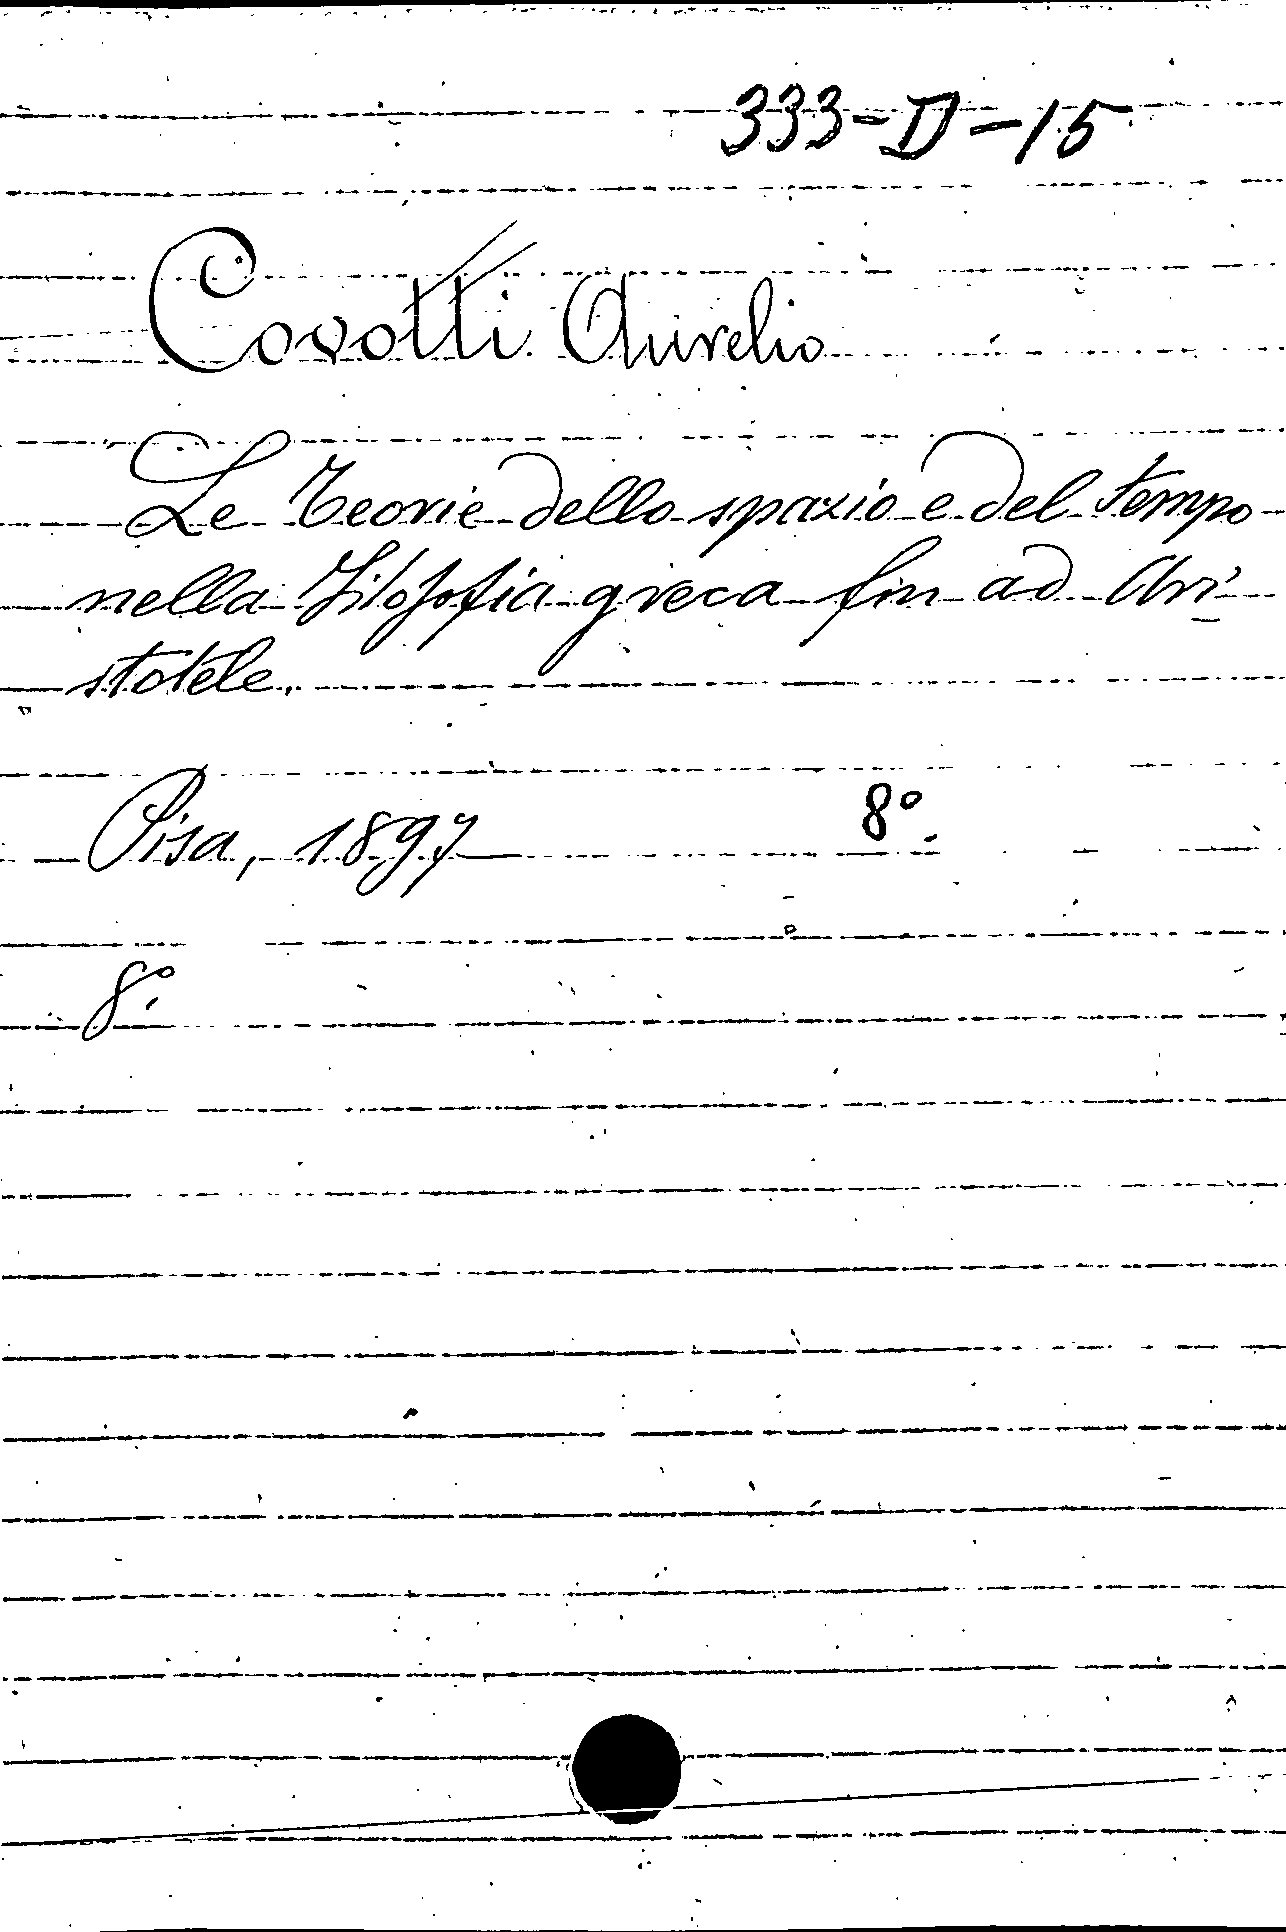 333-D-15
Covotti Aurelio
Le Teorie dello spazio e del tempo
nella Filosofia greca fin ad Ari-
stotele.
Pisa, 1897 8°.
8°.